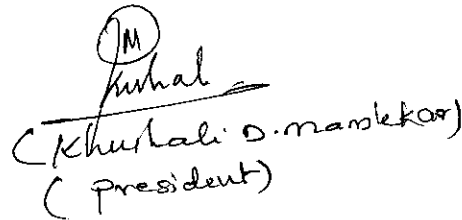 M
Kushal
(Khushali D. Mandrekar)
(President)